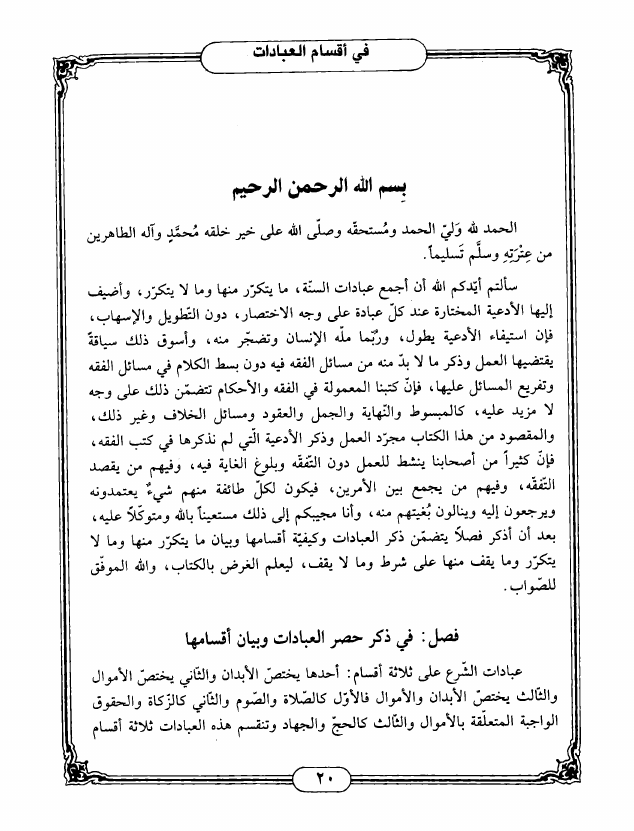 في أقسام العبادات
بِسم الله الرحمن الرحيم
الحمد لله وَليّ الحمد ومُستحقّه وصلّى الله على خير خلقه مُحمَّدٍ وآله الطاهرين
من عِتْرَتِهِ وسلَّم تَسليماً.
سألتم أيّدكم الله أن أجمع عبادات السنّة، ما يتكرّر منها وما لا يتكرّر، وأضيف
إليها الأدعية المختارة عند كلّ عبادة على وجه الاختصار، دون التّطويل والإسهاب،
فإن استيفاء الأدعية يطول، ورُبّما ملّه الإنسان وتضجّر منه، وأسوق ذلك سياقةً
يقتضيها العمل وذكر ما لا بدّ منه من مسائل الفقه فيه دون بسط الكلام في مسائل الفقه
وتفريع المسائل عليها، فإنّ كتبنا المعمولة في الفقه والأحكام تتضمّن ذلك على وجه
لا مزيد عليه، كالمبسوط والنّهاية والجمل والعقود ومسائل الخلاف وغير ذلك،
والمقصود من هذا الكتاب مجرّد العمل وذكر الأدعية الّتي لم نذكرها في كتب الفقه،
فإنّ كثيراً من أصحابنا ينشط للعمل دون التّفقّه وبلوغ الغاية فيه، وفيهم من يقصد
التّفقّه، وفيهم من يجمع بين الأمرين، فيكون لكلّ طائفة منهم شيءٌ يعتمدونه
ويرجعون إليه وينالون بُغيتهم منه، وأنا مجيبكم إلى ذلك مستعيناً بالله ومتوكّلاً عليه،
بعد أن أذكر فصلاً يتضمّن ذكر العبادات وكيفيّة أقسامها وبيان ما يتكرّر منها وما لا
يتكرّر وما يقف منها على شرط وما لا يقف، ليعلم الغرض بالكتاب، والله الموفّق
للصّواب.
فصل: في ذكر حصر العبادات وبيان أقسامها
عبادات الشّرع على ثلاثة أقسام: أحدها يختصّ الأبدان والثّاني يختصّ الأموال
والثّالث يختصّ الأبدان والأموال فالأوّل كالصّلاة والصّوم والثّاني كالزّكاة والحقوق
الواجبة المتعلّقة بالأموال والثّالث كالحجّ والجهاد وتنقسم هذه العبادات ثلاثة أقسام
٢٠